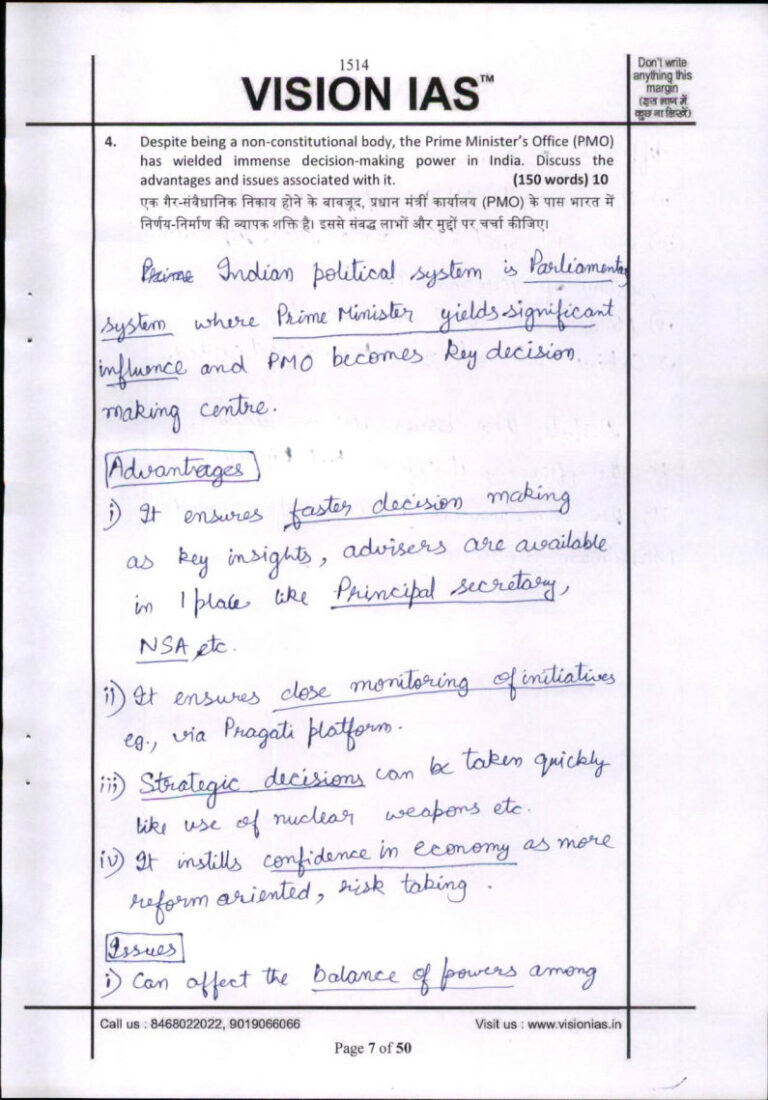 1514
VISION IAS™
Don't write
anything this
margin
(इस भाग में
कुछ ना लिखें)
4. Despite being a non-constitutional body, the Prime Minister's Office (PMO)
has wielded immense decision-making power in India. Discuss the
advantages and issues associated with it. (150 words) 10
एक गैर-संवैधानिक निकाय होने के बावजूद, प्रधान मंत्री कार्यालय (PMO) के पास भारत में
निर्णय-निर्माण की व्यापक शक्ति है। इससे संबद्ध लाभों और मुद्दों पर चर्चा कीजिए।
Prime Indian political system is Parliamentary
system where Prime Minister yields significant
influence and PMO becomes key decision
making centre.
Advantages
i) It ensures faster decision making
as key insights, advisers are available
in 1 place like Principal secretary,
NSA etc.
ii) It ensures close monitoring of initiatives
eg., via Pragati platform.
iii) Strategic decisions can be taken quickly
like use of nuclear weapons etc.
iv) It instills confidence in economy as more
reform oriented, risk taking.
Issues
i) Can affect the balance of powers among
Call us : 8468022022, 9019066066 Visit us : www.visionias.in
Page 7 of 50